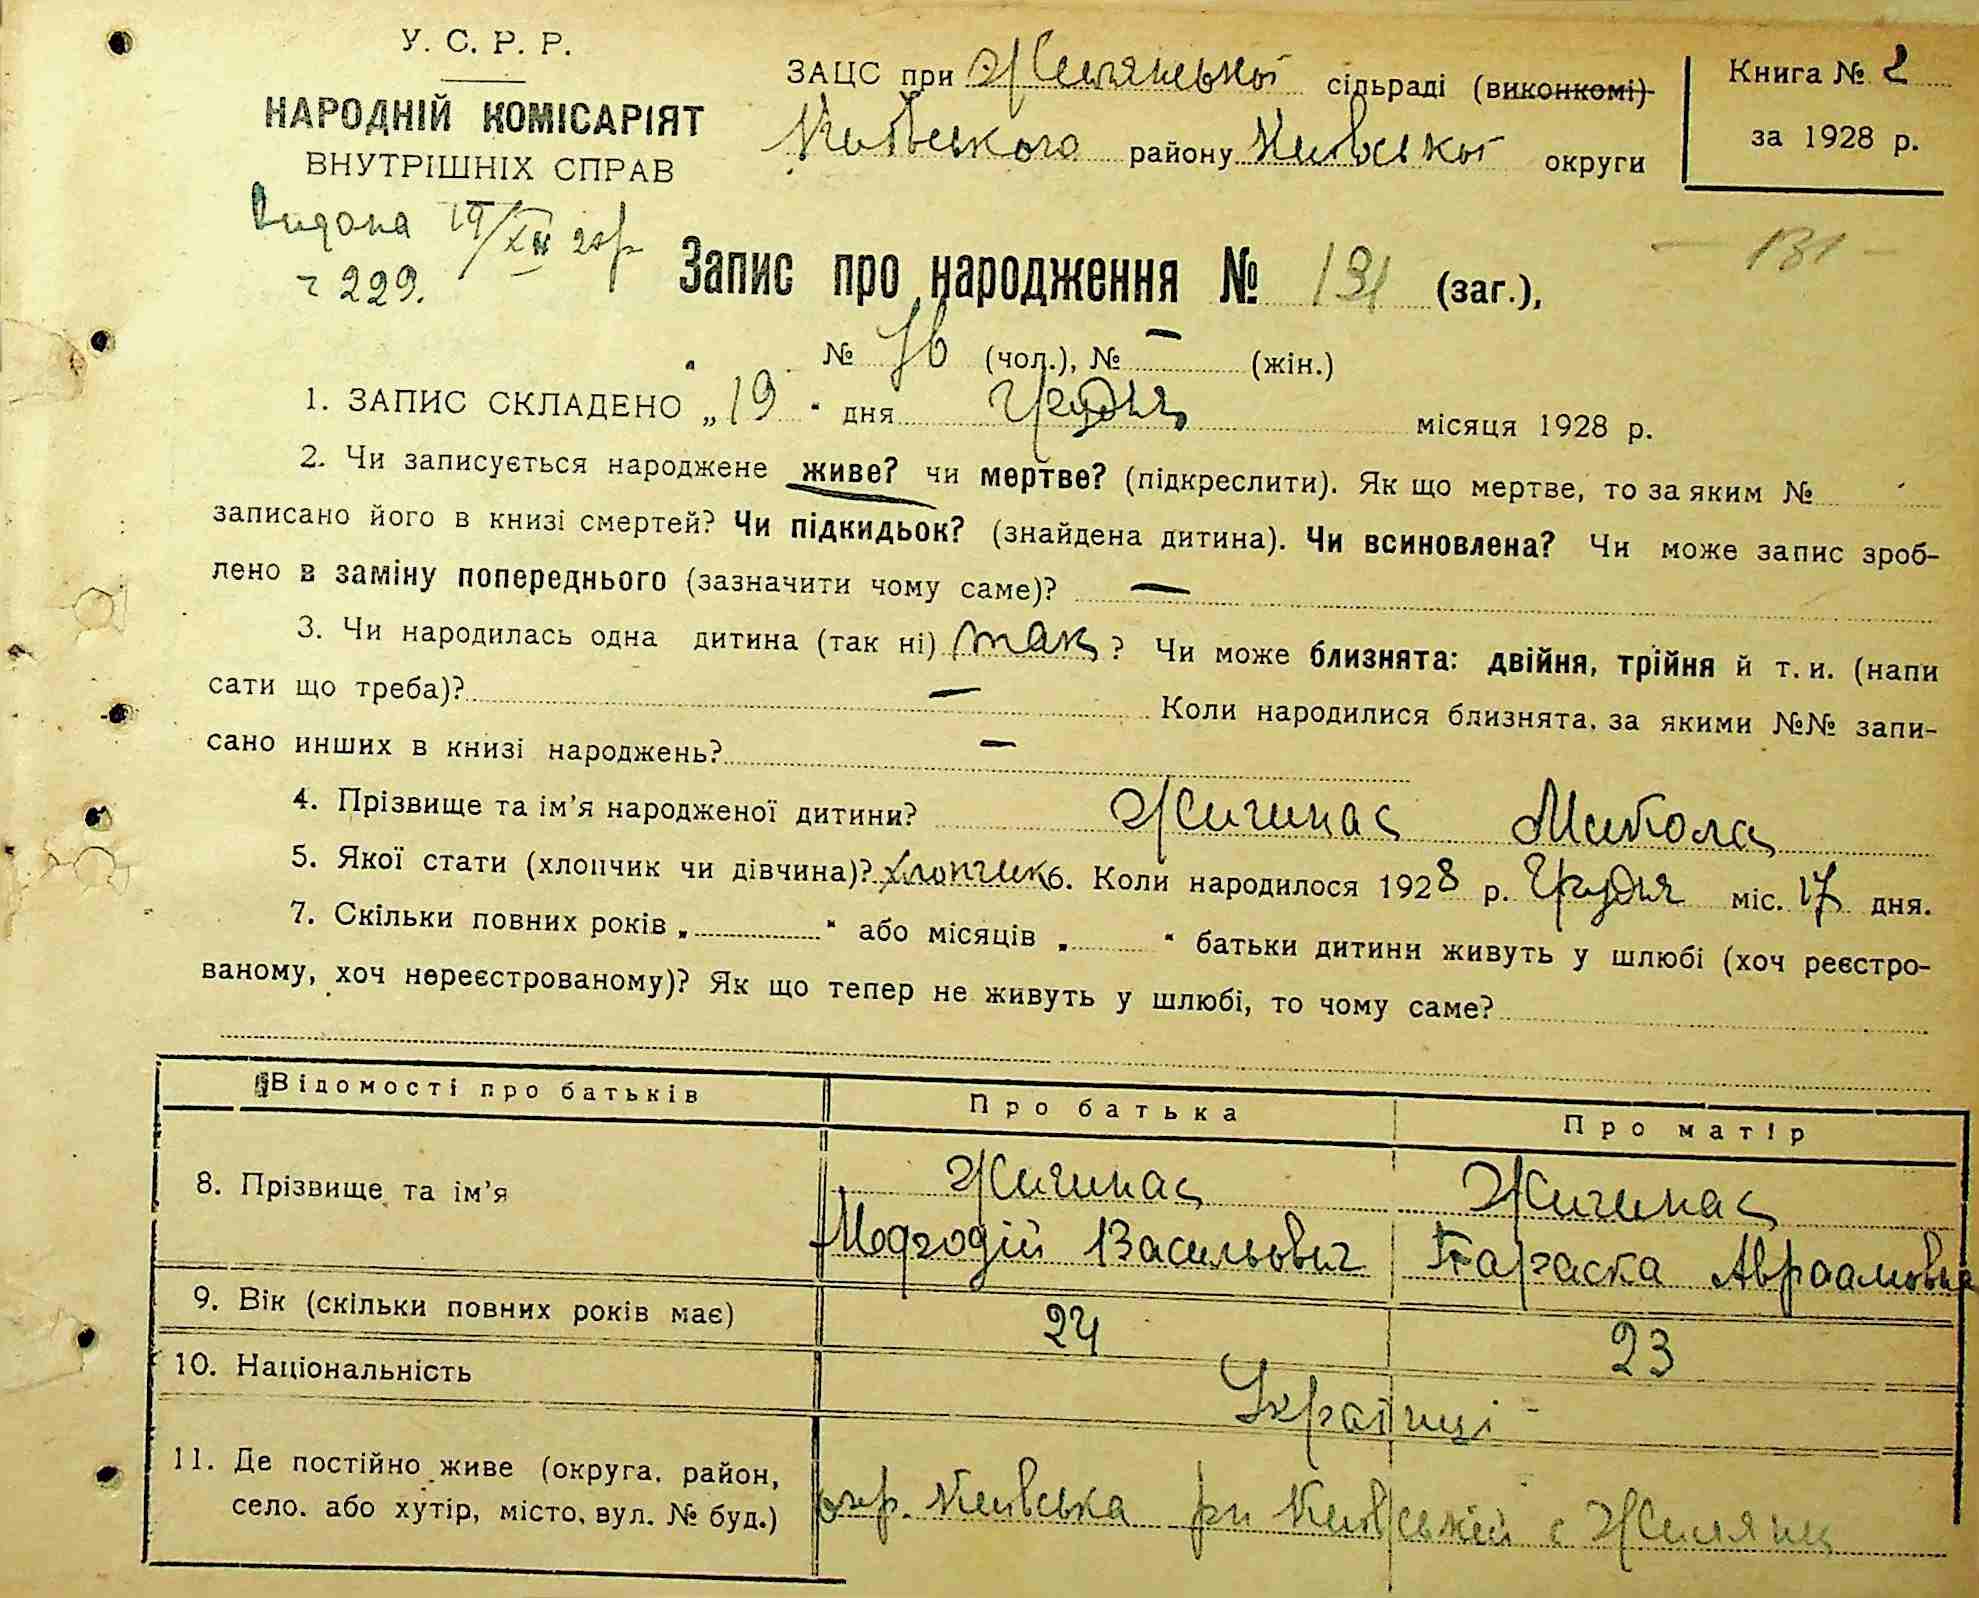 У. С. Р. Р.
НАРОДНІЙ КОМІСАРІЯТ
ВНУТРІШНІХ СПРАВ
ЗАЦС при Жилянській сільраді (виконкомі)
Київського району Київської округи
Книга № 2
за 1928 р.
Видана 19/XII 28 р
ч 229.
Запис про народження № 131 (заг.),
— 131 —
№ 76 (чол.), № — (жін.)
1. ЗАПИС СКЛАДЕНО „19“ дня Грудня місяця 1928 р.
2. Чи записується народжене живе? чи мертве? (підкреслити). Як що мертве, то за яким №
записано його в книзі смертей? Чи підкидьок? (знайдена дитина). Чи всиновлена? Чи може запис зроб-
лено в заміну попереднього (зазначити чому саме)? —
3. Чи народилась одна дитина (так ні) так ? Чи може близнята: двійня, трійня й т. и. (напи
сати що треба)? — Коли народилися близнята, за якими №№ запи-
сано инших в книзі народжень? —
4. Прізвище та ім’я народженої дитини? Жигинас Микола
5. Якої стати (хлопчик чи дівчина)? хлопчик 6. Коли народилося 1928 р. Грудня міс. 17 дня.
7. Скільки повних років „ “ або місяців „ “ батьки дитини живуть у шлюбі (хоч реєстро-
ваному, хоч нереєстрованому)? Як що тепер не живуть у шлюбі, то чому саме?
Відомості про батьків Про батька Про матір
8. Прізвище та ім’я Жигинас Жигинас
Васильович Параска Авраамовна
9. Вік (скільки повних років має) 24 23
10. Національність Українці
11. Де постійно живе (округа, район,
село. або хутір, місто, вул. № буд.) окр. Київська рн Київський с Жиляни